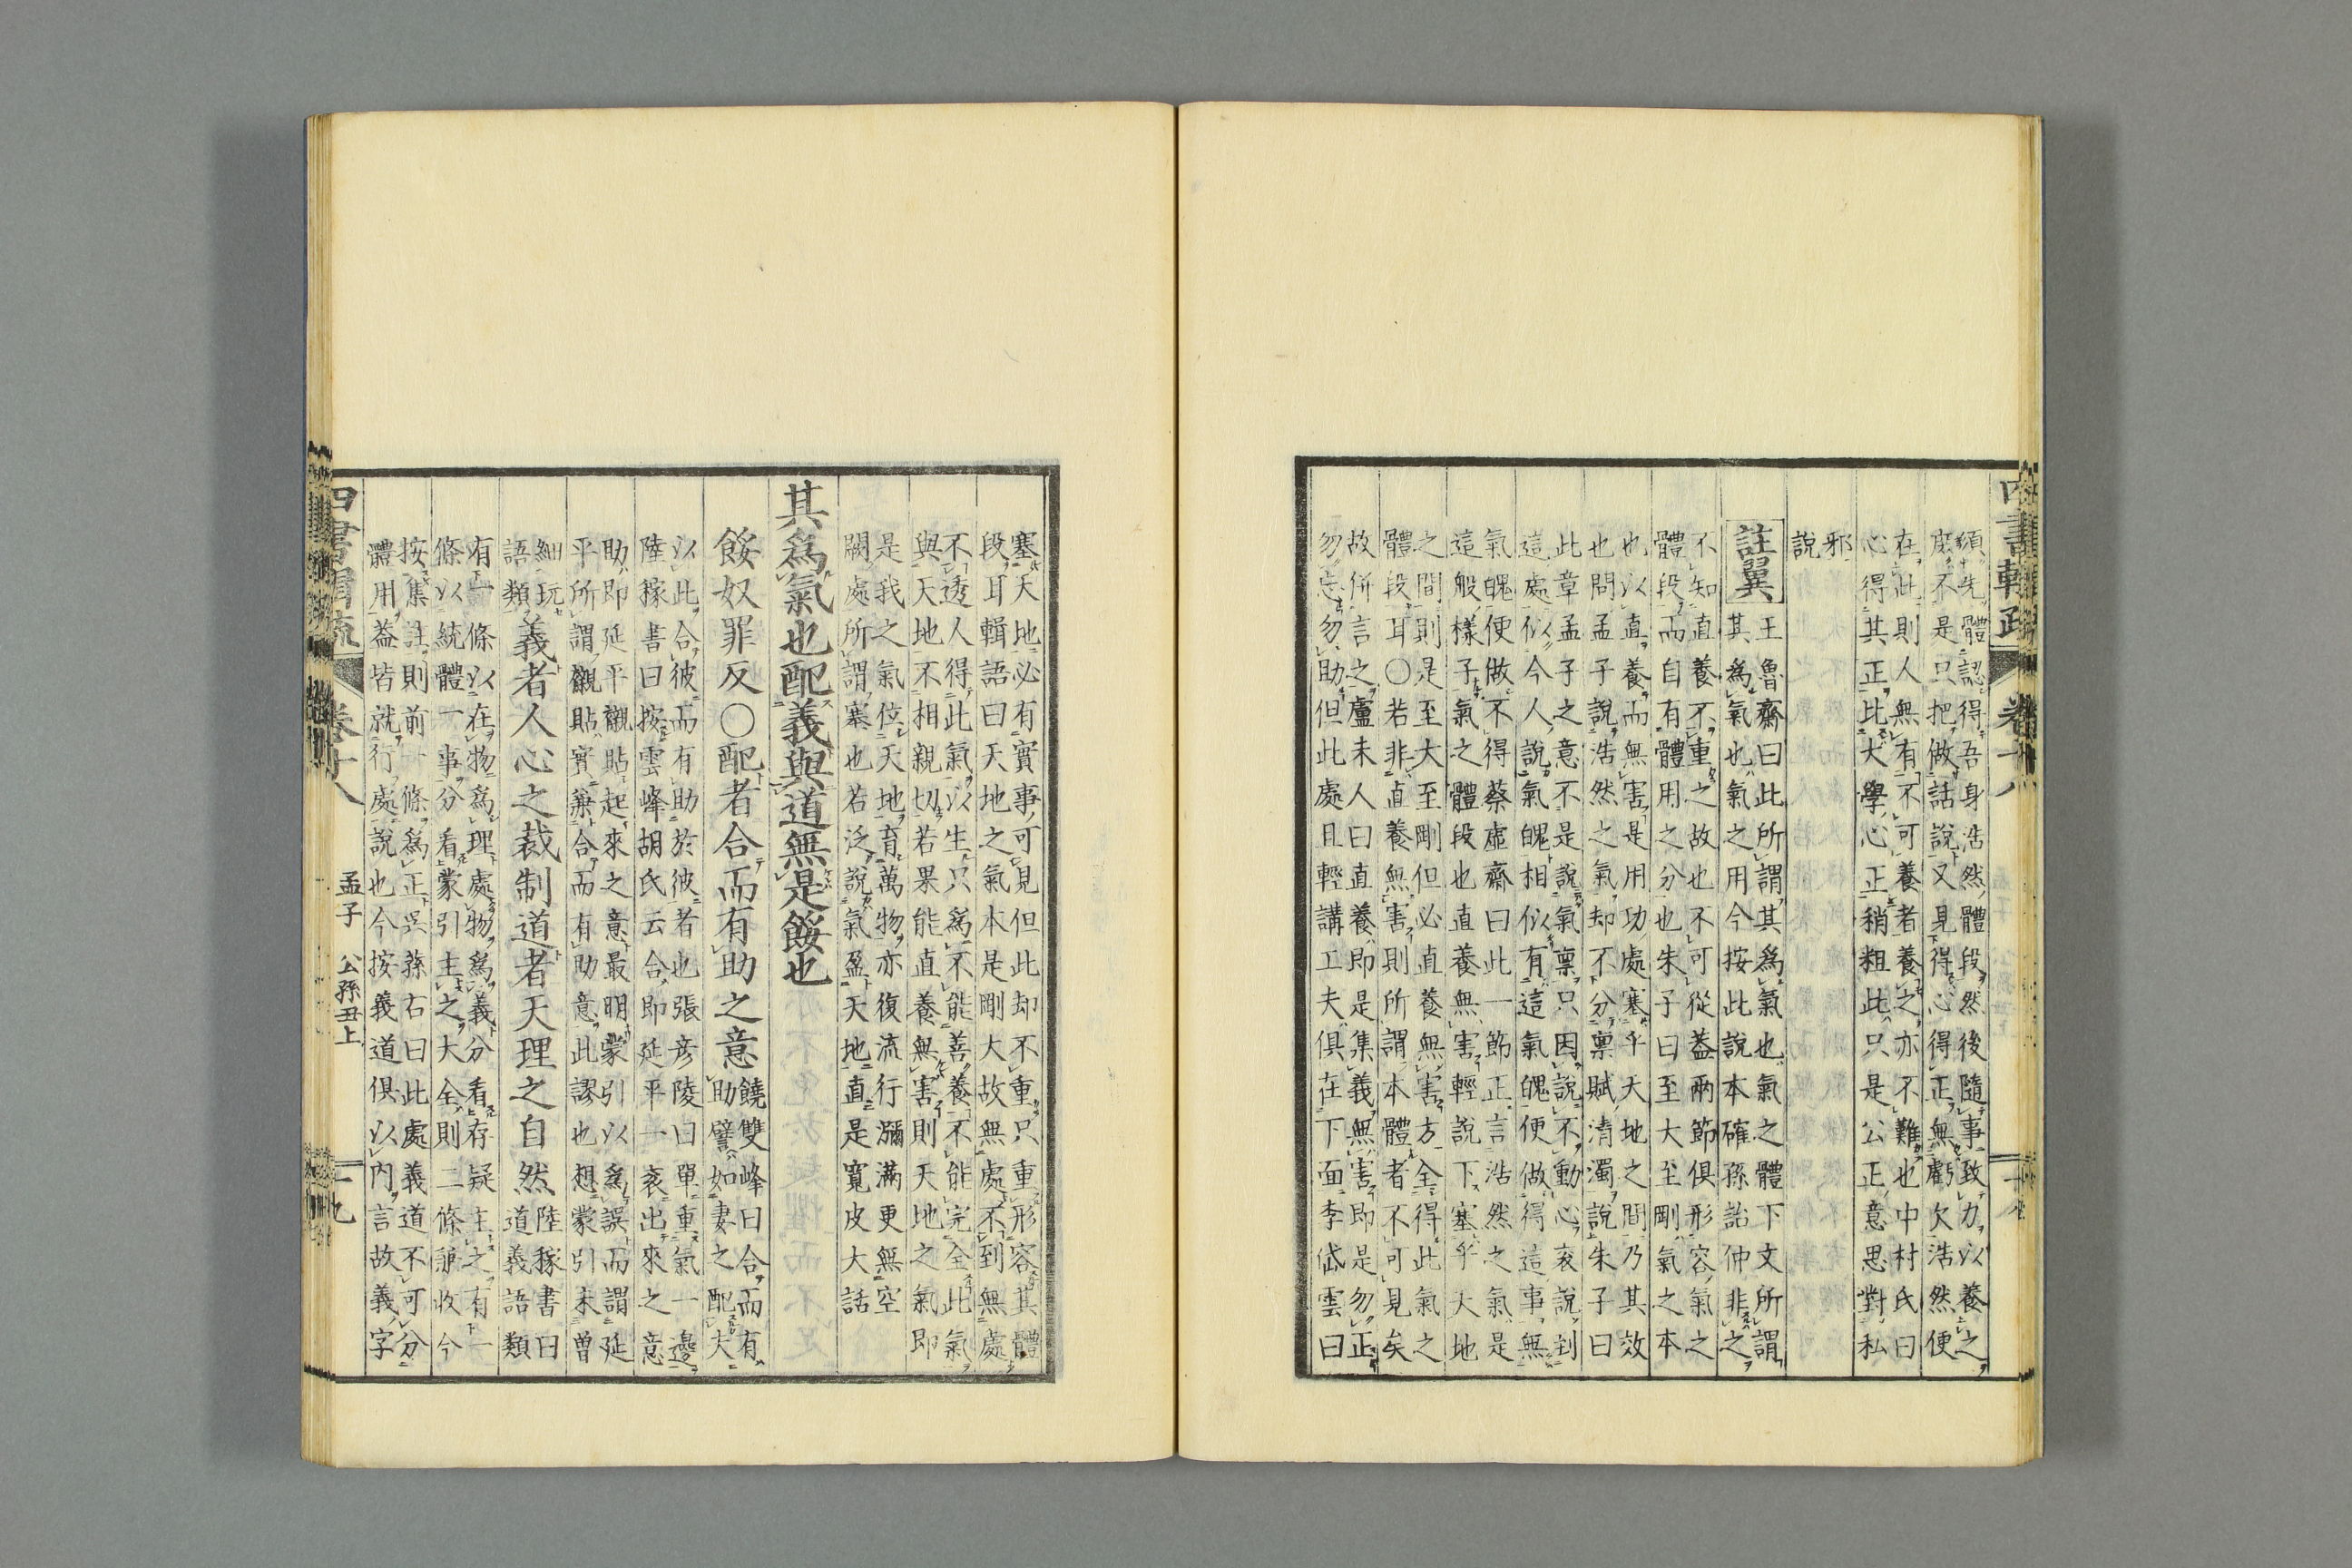 須先體認得吾身浩然體段然後隨事致力以養之
庶不是只把做話說又見得心得正無虧欠浩然便
在此則人無有不可養者養之亦不難也中村氏曰
心得其正比大學心正正稍粗此只是公正意思對私
邪
說
註翼
王魯齋曰此所謂其爲氣也氣之體下文所謂
其爲氣也氣之用今按此說本確孫詒仲非之
不知直養不重之故也不可從蓋兩節俱形容氣之
體段而自有體用之分也朱子曰至大至剛氣之本
也以直養而無害是用功處塞乎天地之間乃其效
也問孟子說浩然之氣却不分禀賦清濁說朱子曰
此章孟子之意不是說氣禀只因說不動心衮說到
這處似今人說氣魄相似有這氣魄便做得這事無
氣魄便做不得蔡虛齋曰此一節正言浩然之氣是
這般樣子氣之體段也直養無害輕說下塞乎天地
之間則是至大至剛但必直養無害方全得此氣之
體段耳○若非直養無害則所謂本體者不可見矣
故併言之盧未人曰直養即是集義無害即是勿正
勿忘勿助但此處且輕講工夫俱在下面李岱雲曰
四書輯疏
卷十八
塞天地必有實事可見但此却不重只重形容其體
段耳輯語曰天地之氣本是剛大故無處不到無處
不透人得此氣以生只爲不能善養不能完全此氣
與天地不相親切若果能直養無害則天地之氣即
是我之氣位天地育萬物亦復流行瀰滿更無空
闕處所謂塞也若泛說氣盈天地直是寬皮大話
其爲氣也配義與道無是餒也
餒奴罪反○配者合而有助之意
饒雙峰曰合而有
助譬如妻之配夫
以此合彼而有助於彼者也張彥陵曰單重氣一邊
陸稼書曰按雲峰胡氏云合即延平一衮出來之意
助即延平襯貼起來之意最明蒙引以爲誤而謂延
平所謂襯貼實兼合而有助意此謬也想蒙引未曾
細玩
語類
義者人心之裁制道者天理之自然
陸稼書曰
道義語類
有一條以在物爲理處物爲義分看存疑主之有一
條以統體一事分看蒙引主之大全則二條兼收今
按集註則前一條爲正吳蓀右曰此處義道不可分
體用蓋皆就行處說也今按義道俱以內言故義字
四書輯疏
卷十八
孟子
公孫丑上
十九